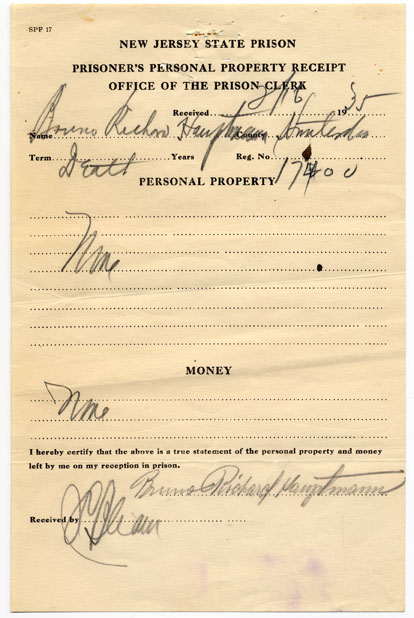 SPF 17
NEW JERSEY STATE PRISON
PRISONER'S PERSONAL PROPERTY RECEIPT
OFFICE OF THE PRISON CLERK
Received 2/16 1935
Name Bruno Richard Hauptmann County Hunterdon
Term Death Years Reg. No. 17400
PERSONAL PROPERTY
None
MONEY
None
I hereby certify that the above is a true statement of the personal property and money
left by me on my reception in prison.
Bruno Richard Hauptmann
Received by